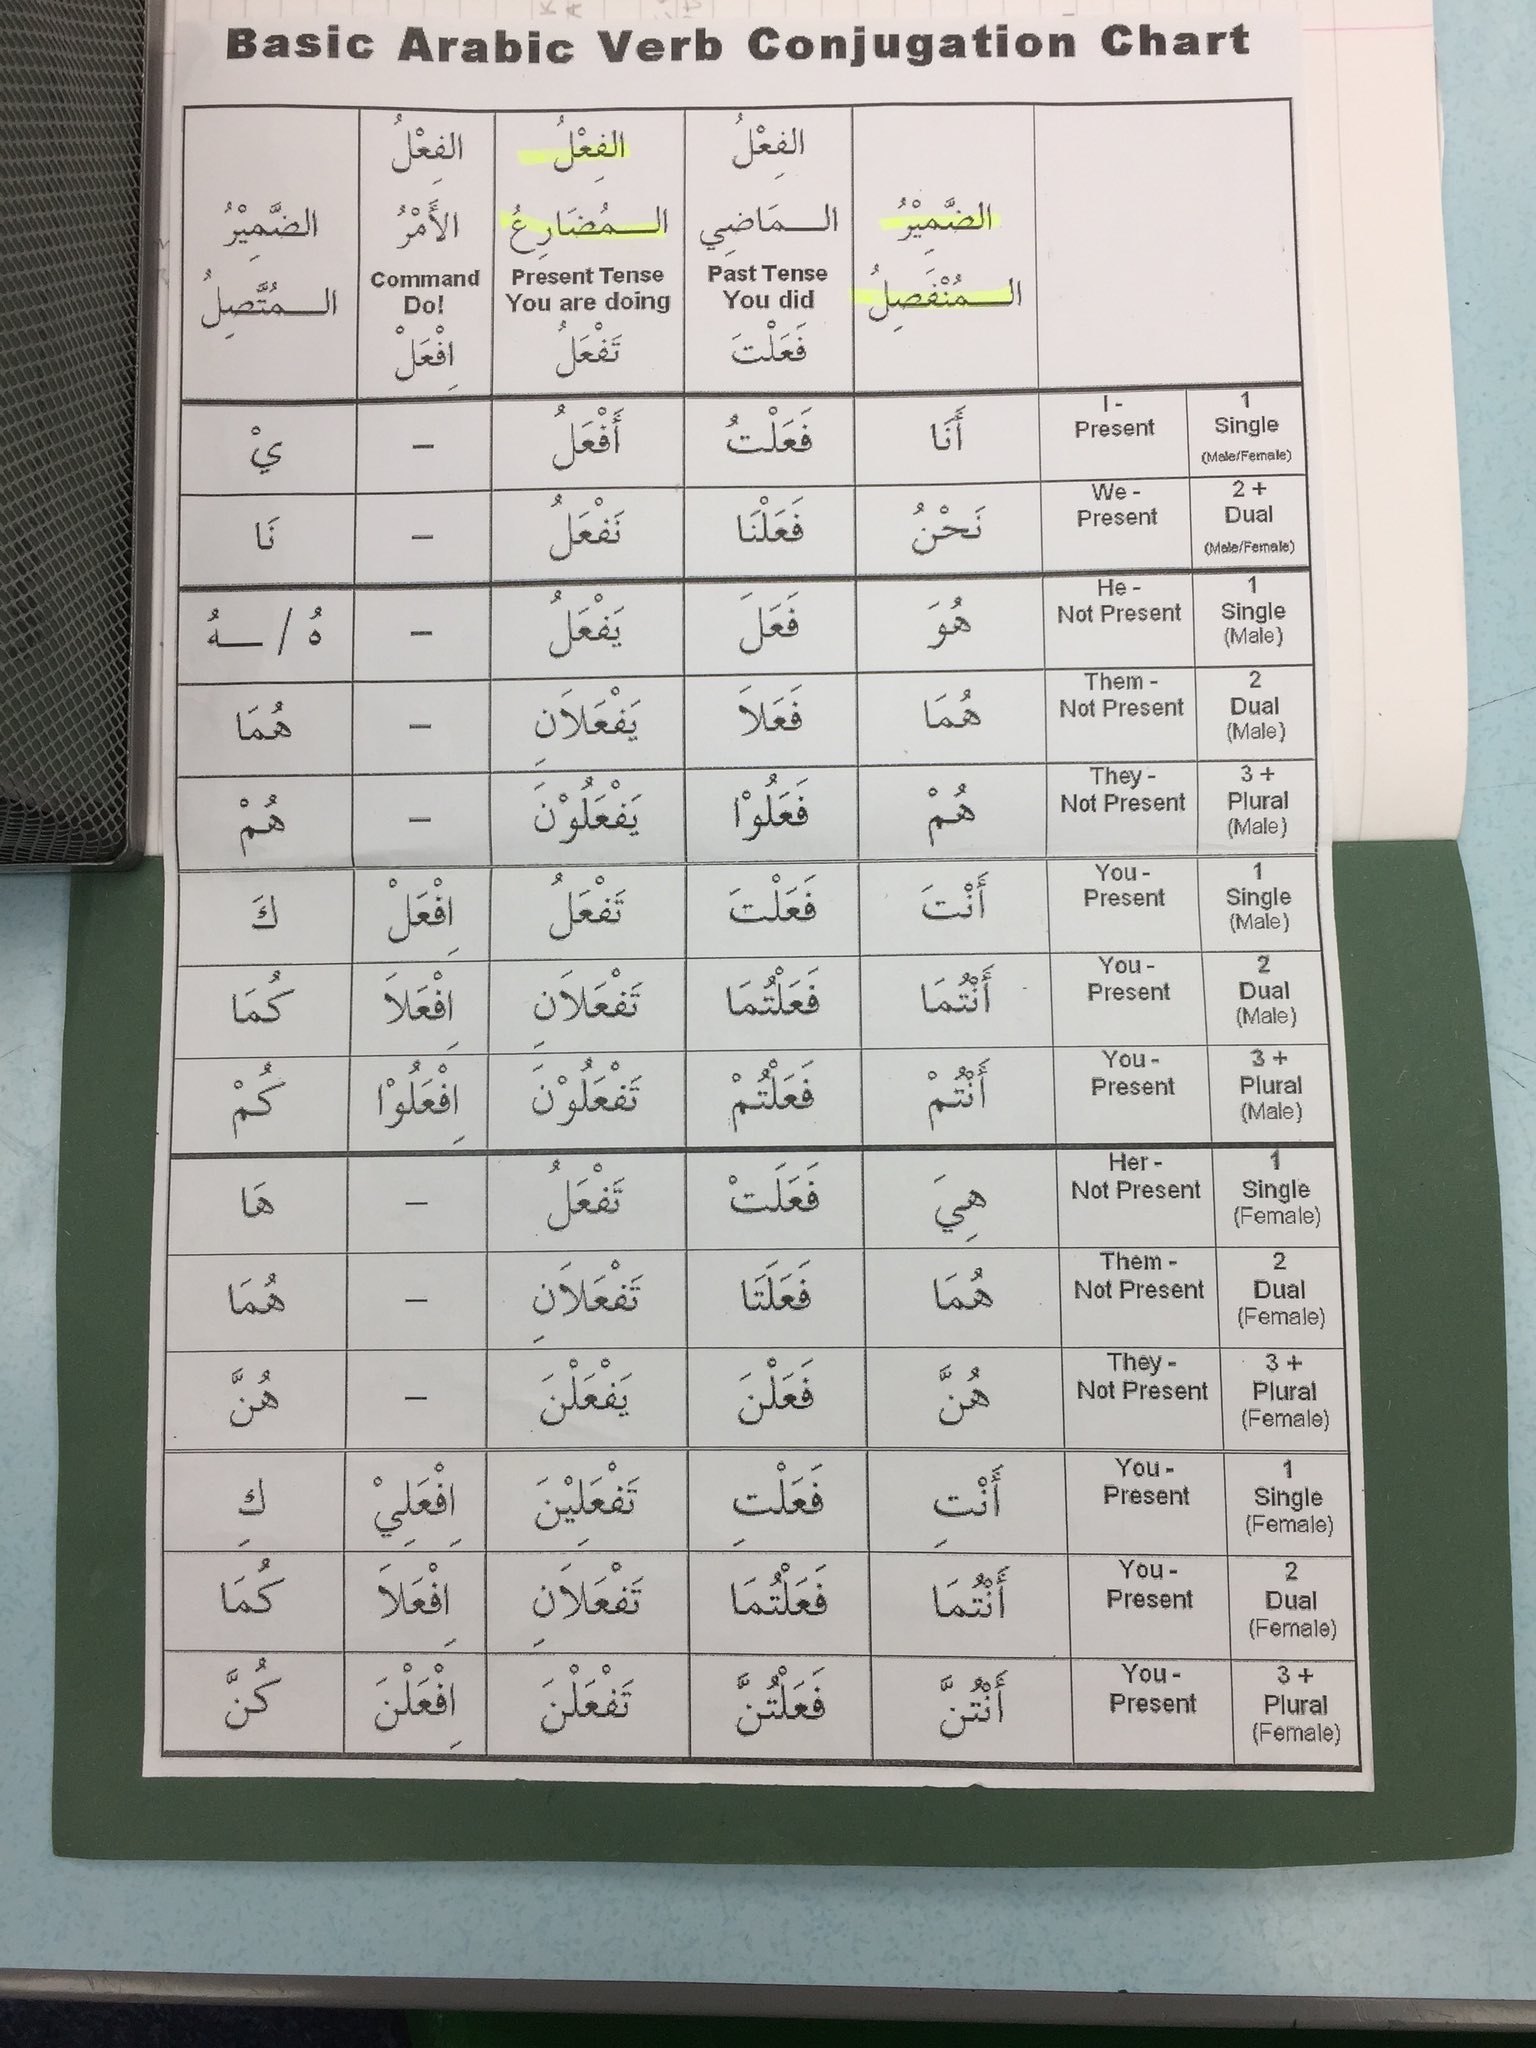 Basic Arabic Verb Conjugation Chart
الضَّمِيْرُ الـمُنْفَصِلُ
الفِعْلُ الـمَاضِي Past Tense You did فَعَلْتَ
الفِعْلُ الـمُضَارِعُ Present Tense You are doing تَفْعَلُ
الفِعْلُ الأَمْرُ Command Do! اِفْعَلْ
الضَّمِيْرُ الـمُتَّصِلُ
1 Single (Male/Female) I - Present أَنَا فَعَلْتُ أَفْعَلُ – يْ
2 + Dual (Male/Female) We - Present نَحْنُ فَعَلْنَا نَفْعَلُ – نَا
1 Single (Male) He - Not Present هُوَ فَعَلَ يَفْعَلُ – هُ / ـهُ
2 Dual (Male) Them - Not Present هُمَا فَعَلاَ يَفْعَلاَنِ – هُمَا
3 + Plural (Male) They - Not Present هُمْ فَعَلُوْا يَفْعَلُوْنَ – هُمْ
1 Single (Male) You - Present أَنْتَ فَعَلْتَ تَفْعَلُ اِفْعَلْ كَ
2 Dual (Male) You - Present أَنْتُمَا فَعَلْتُمَا تَفْعَلاَنِ اِفْعَلاَ كُمَا
3 + Plural (Male) You - Present أَنْتُمْ فَعَلْتُمْ تَفْعَلُوْنَ اِفْعَلُوْا كُمْ
1 Single (Female) Her - Not Present هِيَ فَعَلَتْ تَفْعَلُ – هَا
2 Dual (Female) Them - Not Present هُمَا فَعَلَتَا تَفْعَلاَنِ – هُمَا
3 + Plural (Female) They - Not Present هُنَّ فَعَلْنَ يَفْعَلْنَ – هُنَّ
1 Single (Female) You - Present أَنْتِ فَعَلْتِ تَفْعَلِيْنَ اِفْعَلِيْ كِ
2 Dual (Female) You - Present أَنْتُمَا فَعَلْتُمَا تَفْعَلاَنِ اِفْعَلاَ كُمَا
3 + Plural (Female) You - Present أَنْتُنَّ فَعَلْتُنَّ تَفْعَلْنَ اِفْعَلْنَ كُنَّ